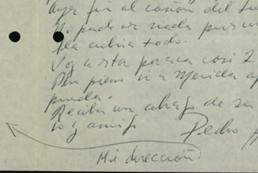 ayer fui al cañón del
No pude ver nada por
lo cubría todo.
Voy a estar por aca casi 2
pienso ir a Merida
pueda.
Reciba un abrazo de su
y amigo
Pedro
Mi dirección